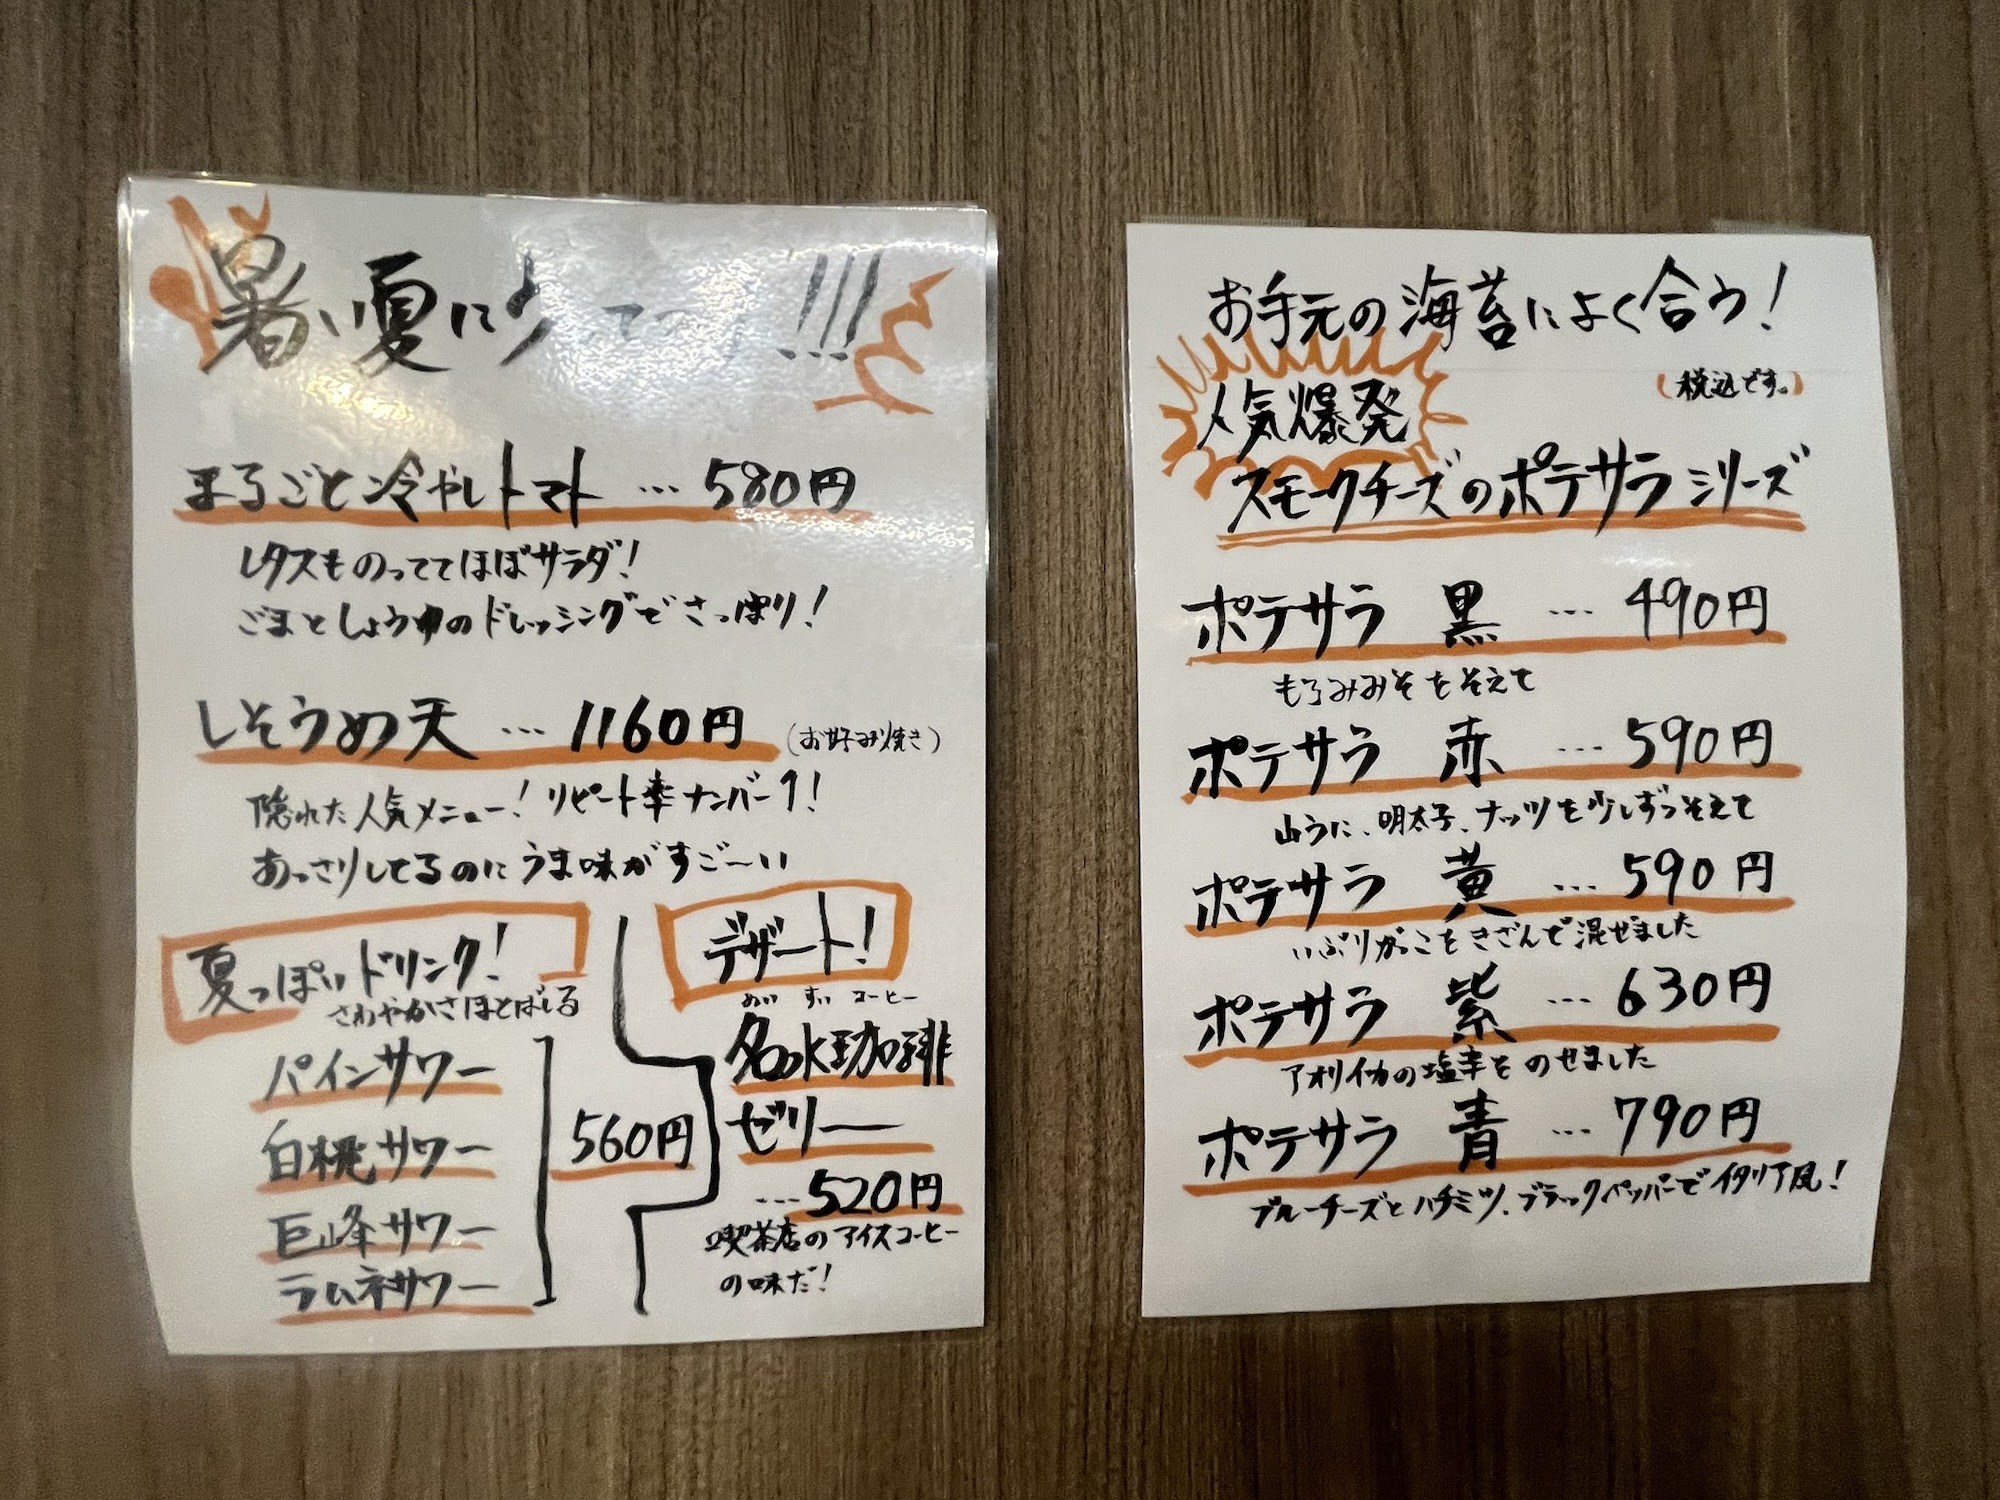 暑い夏に
!!!
まるごと冷やしトマト … 580円
レタスものっててほぼサラダ!
ごまとしょうゆのドレッシングでさっぱり!
しそうめ天 … 1160円 (お好み焼き)
隠れた人気メニュー! リピート率ナンバー1!
あっさりしてるのにうま味がすご〜い
夏っぽいドリンク!
さわやかさほとばしる
パインサワー
白桃サワー
巨峰サワー
ラムネサワー
560円
デザート!
めい すい コーヒー
名水珈琲
ゼリー
…520円
喫茶店のアイスコーヒー
の味だ!
お手元の海苔によく合う!
(税込です。)
人気爆発
スモークチーズのポテサラシリーズ
ポテサラ 黒 … 490円
もろみみそをそえて
ポテサラ 赤 … 590円
山うに、明太子、ナッツを少しずつそえて
ポテサラ 黄 … 590円
いぶりがっこをきざんで混ぜました
ポテサラ 紫 … 630円
アオリイカの塩辛をのせました
ポテサラ 青 … 790円
ブルーチーズとハチミツ、ブラックペッパーでイタリア風!